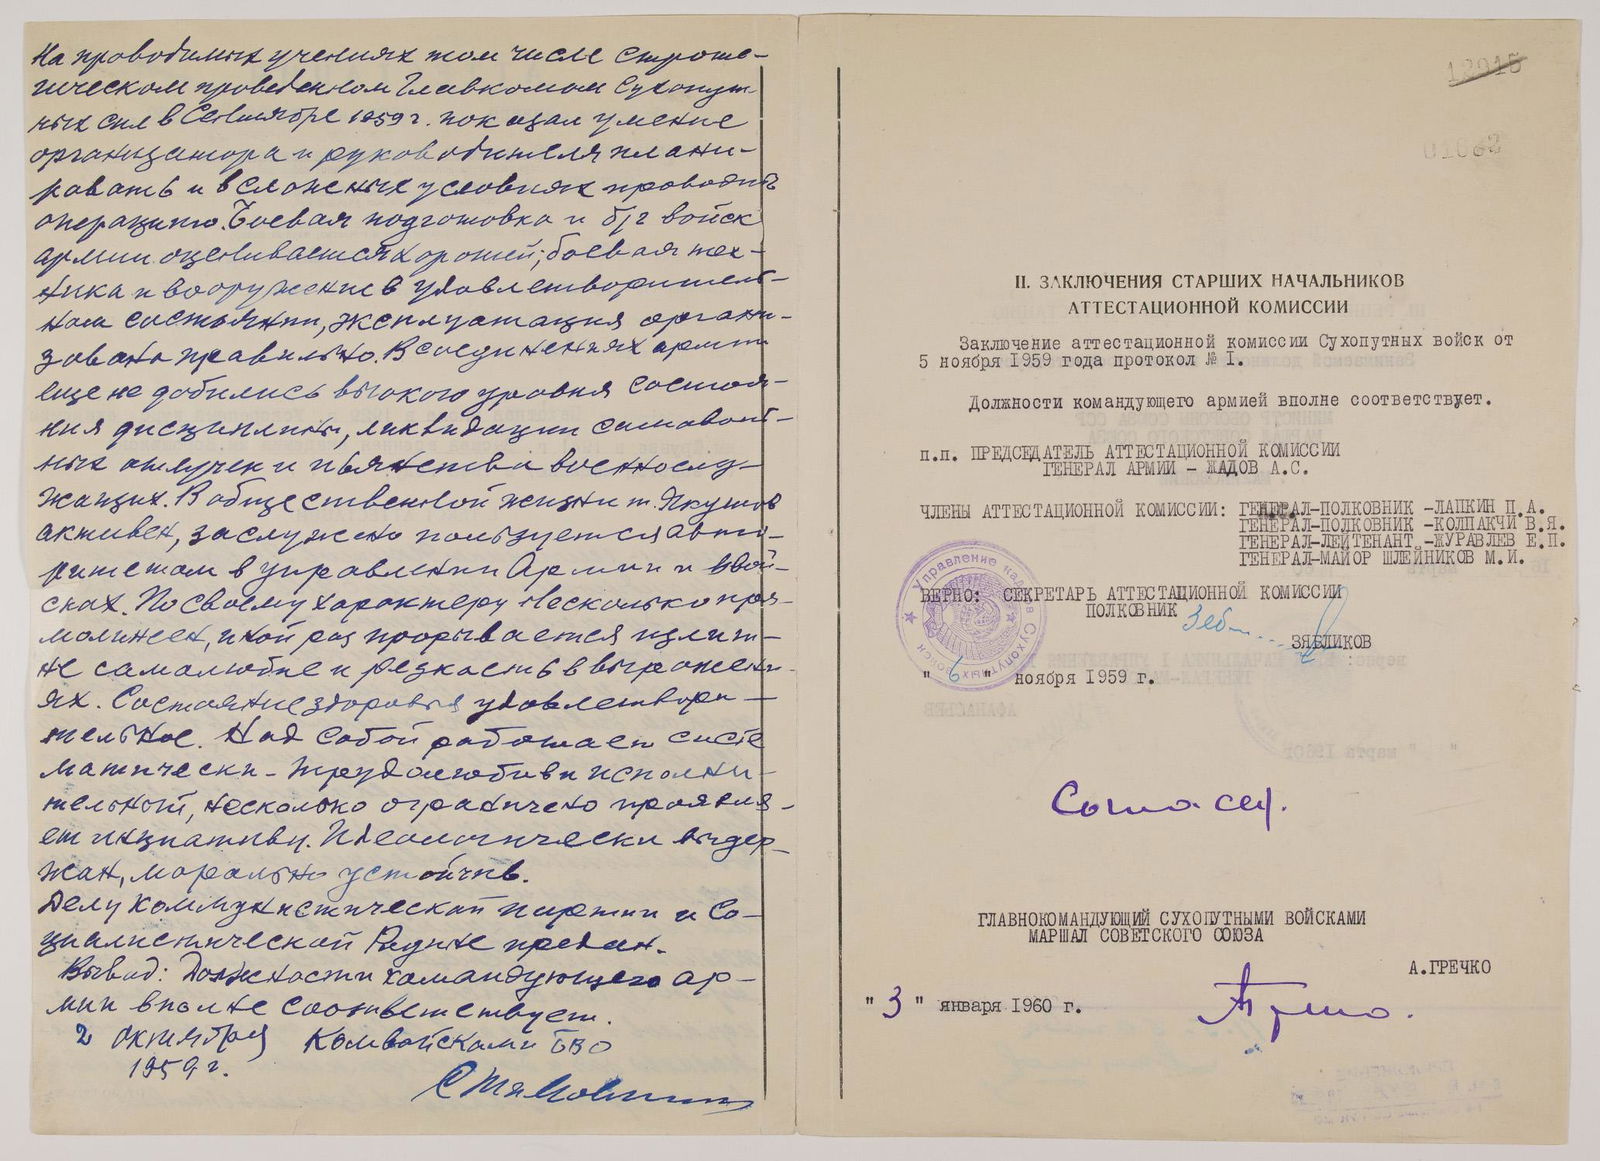 На проводимых учениях том числе страте-
гическом проведенном Главкомом Сухопут
ных сил в Сентябре 1959 г. показал умение
организатора и руководителя плани-
ровать и в сложных условиях проводить
операцию. Боевая подготовка и б/г войск
армии оценивается хорошей; боевая тех-
ника и вооружение в удовлетворитель-
ном состоянии, эксплуатация органи-
зована правильно. В соединениях армии
еще не добились высокого уровня состоя-
ния дисциплины, ликвидации самоволь-
ных отлучек и пьянства военнослу-
жащих. В общественной жизни т. Якушов
активен, заслужено пользуется авто-
ритетом в управлении Армии и вой-
сках. По своему характеру несколько пря-
молинеен, иной раз прорывается излиш-
не самолюбие и резкость в выражени-
ях. Состояние здоровья удовлетвори-
тельное. Над собой работает систе
матически - трудолюбив и исполни-
тельный, несколько ограничено проявля-
ет инциативу. Идеологически выдер-
жан, морально устойчив.
Делу Коммунистической партии и Со-
циалистической Родине предан.
Вывод: Должности командующего ар-
мии вполне соответствует.
2 октября Комвойсками БВО
1959 г.
12915
01062
II. ЗАКЛЮЧЕНИЯ СТАРШИХ НАЧАЛЬНИКОВ
АТТЕСТАЦИОННОЙ КОМИССИИ
Заключение аттестационной комиссии Сухопутных войск от
5 ноября 1959 года протокол № 1.
Должности командующего армией вполне соответствует.
п.п. ПРЕДСЕДАТЕЛЬ АТТЕСТАЦИОННОЙ КОМИССИИ
ГЕНЕРАЛ АРМИИ - ЖАДОВ А.С.
ЧЛЕНЫ АТТЕСТАЦИОННОЙ КОМИССИИ: ГЕНЕРАЛ-ПОЛКОВНИК -ЛАПКИН П.А.
ГЕНЕРАЛ-ПОЛКОВНИК -КОЛПАКЧИ В.Я.
ГЕНЕРАЛ-ЛЕЙТЕНАНТ -ЖУРАВЛЕВ Е.П.
ГЕНЕРАЛ-МАЙОР ШЛЕЙНИКОВ М.И.
Управление кадров Сухопутных войск
ВЕРНО: СЕКРЕТАРЬ АТТЕСТАЦИОННОЙ КОМИССИИ
ПОЛКОВНИК
ЗЯБЛИКОВ
" 6 " ноября 1959 г.
Согласен.
ГЛАВНОКОМАНДУЮЩИЙ СУХОПУТНЫМИ ВОЙСКАМИ
МАРШАЛ СОВЕТСКОГО СОЮЗА
А.ГРЕЧКО
" 3 " января 1960 г.